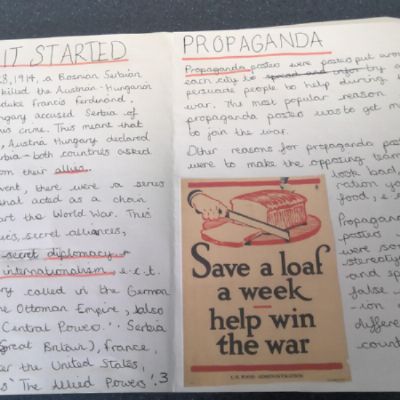 IT STARTED
28, 1914, a Bosnian Serbian
killed the Austrian-Hungarian
duke Francis ferdinand.
ngary accused Serbia of
us crime. This meant that
, Austria Hungary declared
rbia - both countries asked
rom their allies.
vent, there were a series
that acted as a chain
art the World War. This
ies, secret alliances,
secret diplomacy
internationalism, e.t.c.
ry called in the German
he Ottoman Empire, (also
Central Power. Serbia
Great Britain), France,
er the United States,
s 'The Allied Powers'. 3
PROPAGANDA
Propaganda posters were posters put
each city to spread and try
persuade people to help during
war. The most popular reason
propaganda posters was to get m
to join the war.
Other reasons for propaganda pos
were to make the opposing team
look bad,
ration yo
food, e.
Propagan
poste
were so
stereoty
and sp
false
-ion
differe
count
Save a loaf
a week
help win
the war
U.S. FOOD ADMINISTRATION